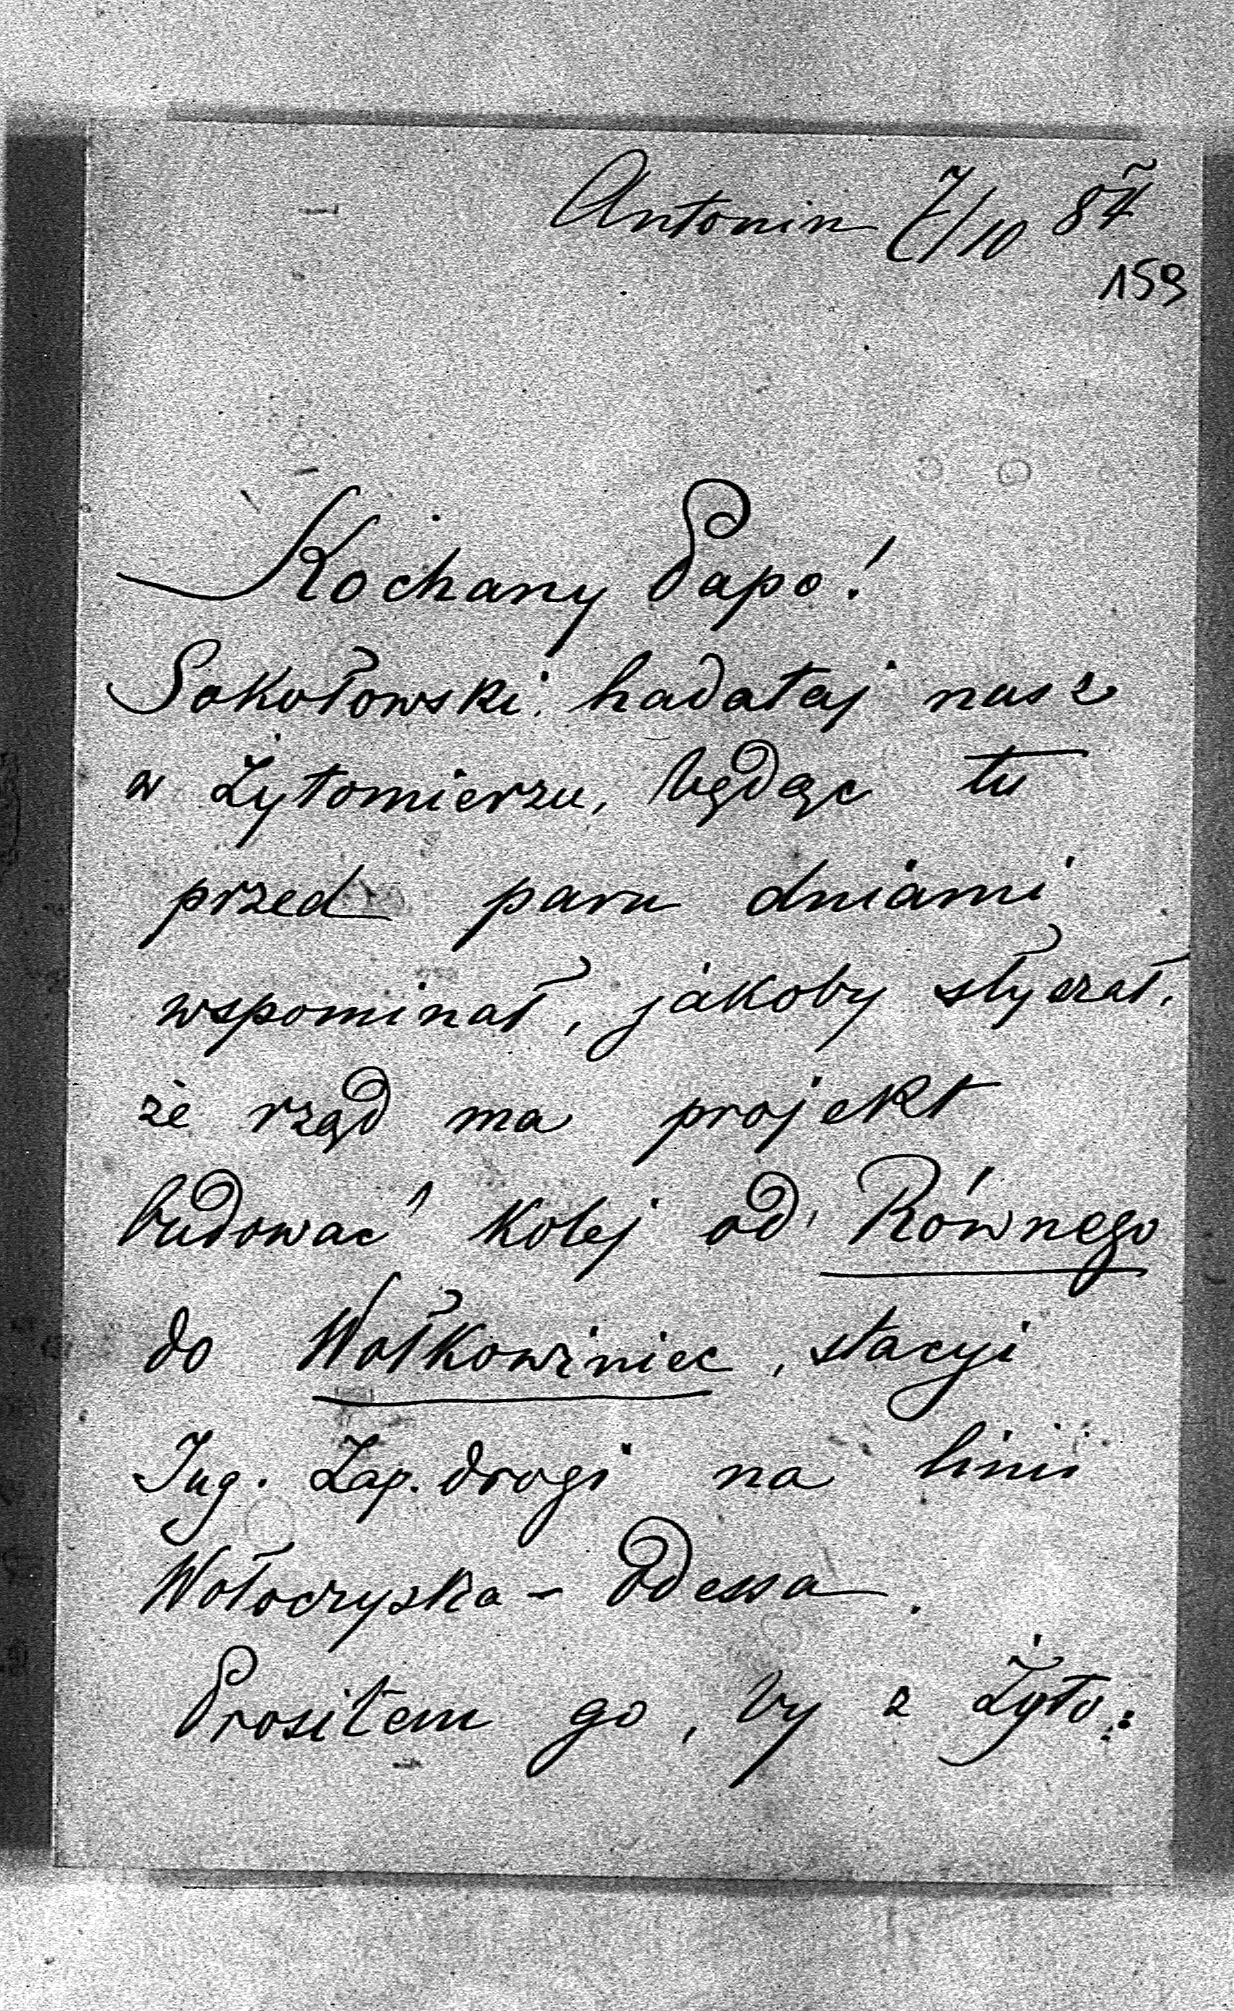 Antonin 7/10 87
159
Kochany Papo!
Sokołowski hadataj nasz
w Żytomierzu, będąc tu
przed paru dniami
wspominał, jakoby słyszał,
że rząd ma projekt
budować kolej od Równego
do Wołkowiniec, stacyi
Jug. Zap. drogi na linii
Wołoczyska – Odessa.
Prosiłem go, by z Żyto: